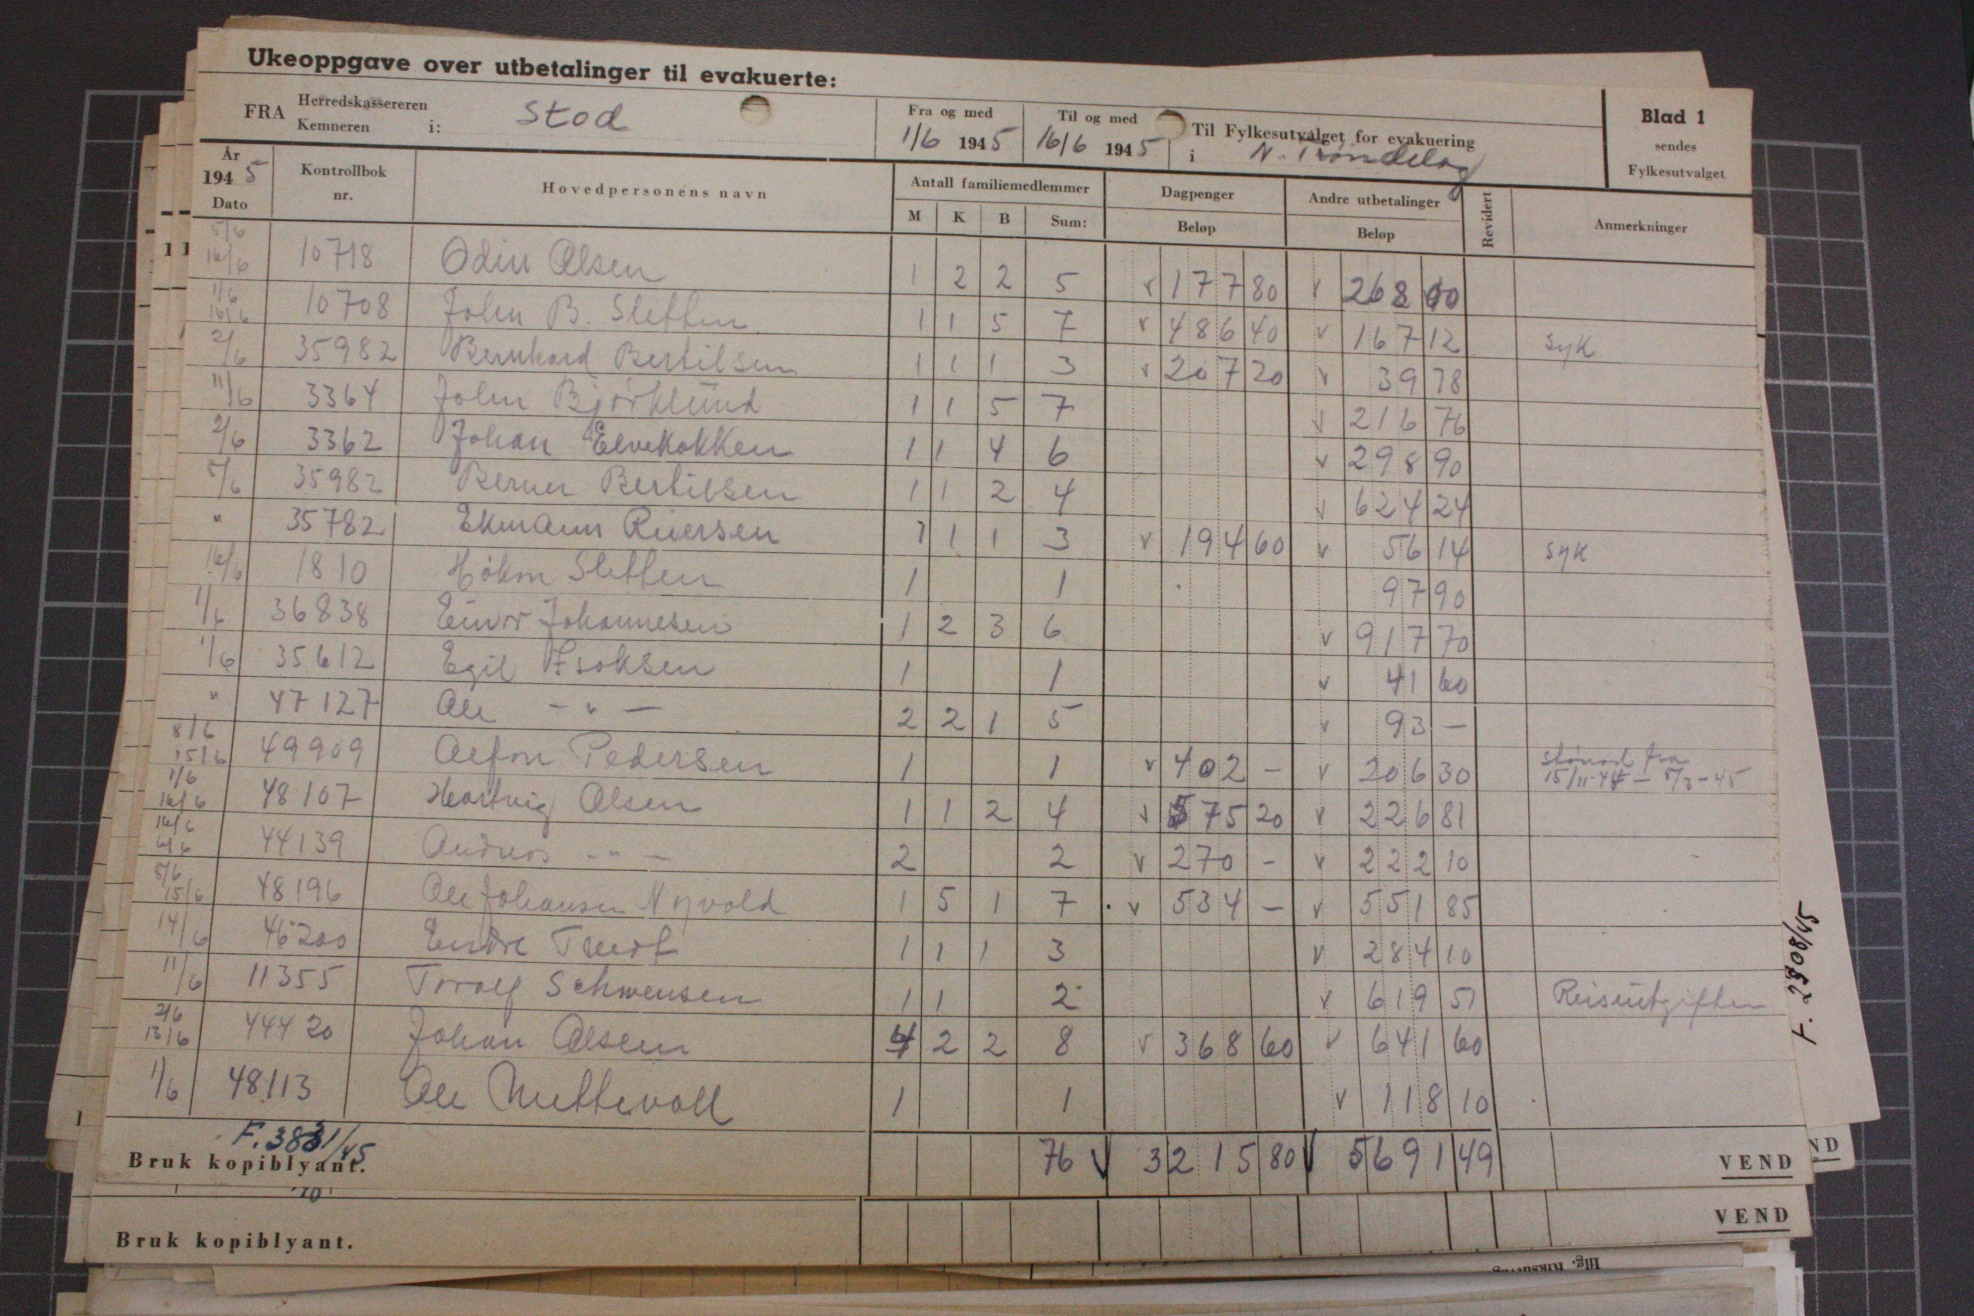 Ukeoppgave over utbetalinger til evakuerte:
FRA Herredskassereren Kemneren i: Stod Fra og med 1/6 1945 Til og med 16/6 1945 Til Fylkesutvalget for evakuering i N. Trøndelag Blad 1 sendes Fylkesutvalget
År 1945 Dato Kontrollbok nr. Hovedpersonens navn Antall familiemedlemmer M K B Sum: Dagpenger Beløp Andre utbetalinger Beløp Revidert Anmerkninger
5/6 16/6 10718 Odin Olsen 1 2 2 5 v 177 80 v 268 00
1/6 16/6 10708 John B. Sletten 1 1 5 7 v 486 40 v 167 12 syk
2/6 35982 Bernhard Bertilsen 1 1 1 3 v 207 20 v 39 78
11/6 3364 John Bjørklund 1 1 5 7 v 216 76
2/6 3362 Johan Elvekokken 1 1 4 6 v 298 90
5/6 35982 Berner Bertilsen 1 1 2 4 v 624 24
" 35782 Ekmann Riversen 1 1 1 3 v 194 60 v 56 14 syk
16/6 1810 Håkon Sletten 1 1 97 90
1/6 36838 Einar Johannesen 1 2 3 6 v 917 70
1/6 35612 Egil Isaksen 1 1 v 41 60
" 47127 Ole - " - 2 2 1 5 v 93 -
8/6 15/6 49909 Alfon Pedersen 1 1 v 402 - v 206 30 stønad fra 15/11-44 - 5/3-45
1/6 16/6 48107 Hartvig Olsen 1 1 2 4 v 575 20 v 226 81
16/6 44139 Andreas - " - 2 2 v 270 - v 222 10
5/6 15/6 48196 Ole Johansen Nyvold 1 5 1 7 v 534 - v 551 85
14/6 46200 Endre 1 1 1 3 v 284 10
11/6 11355 Torolf Schwensen 1 1 2 v 619 51 Reiseutgifter
2/6 13/6 44420 Johan Olsen 4 2 2 8 v 368 60 v 641 60
1/6 48113 Ole 1 1 v 118 10
76 v 3215 80 v 5691 49
F. /45
Bruk kopiblyant. VEND
VEND
Bruk kopiblyant. VEND